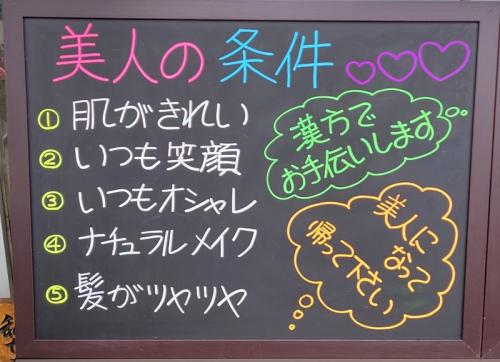 美人の条件
① 肌がきれい
② いつも笑顔
③ いつもオシャレ
④ ナチュラルメイク
⑤ 髪がツヤツヤ
漢方で
お手伝いします
美人になって
帰って下さい